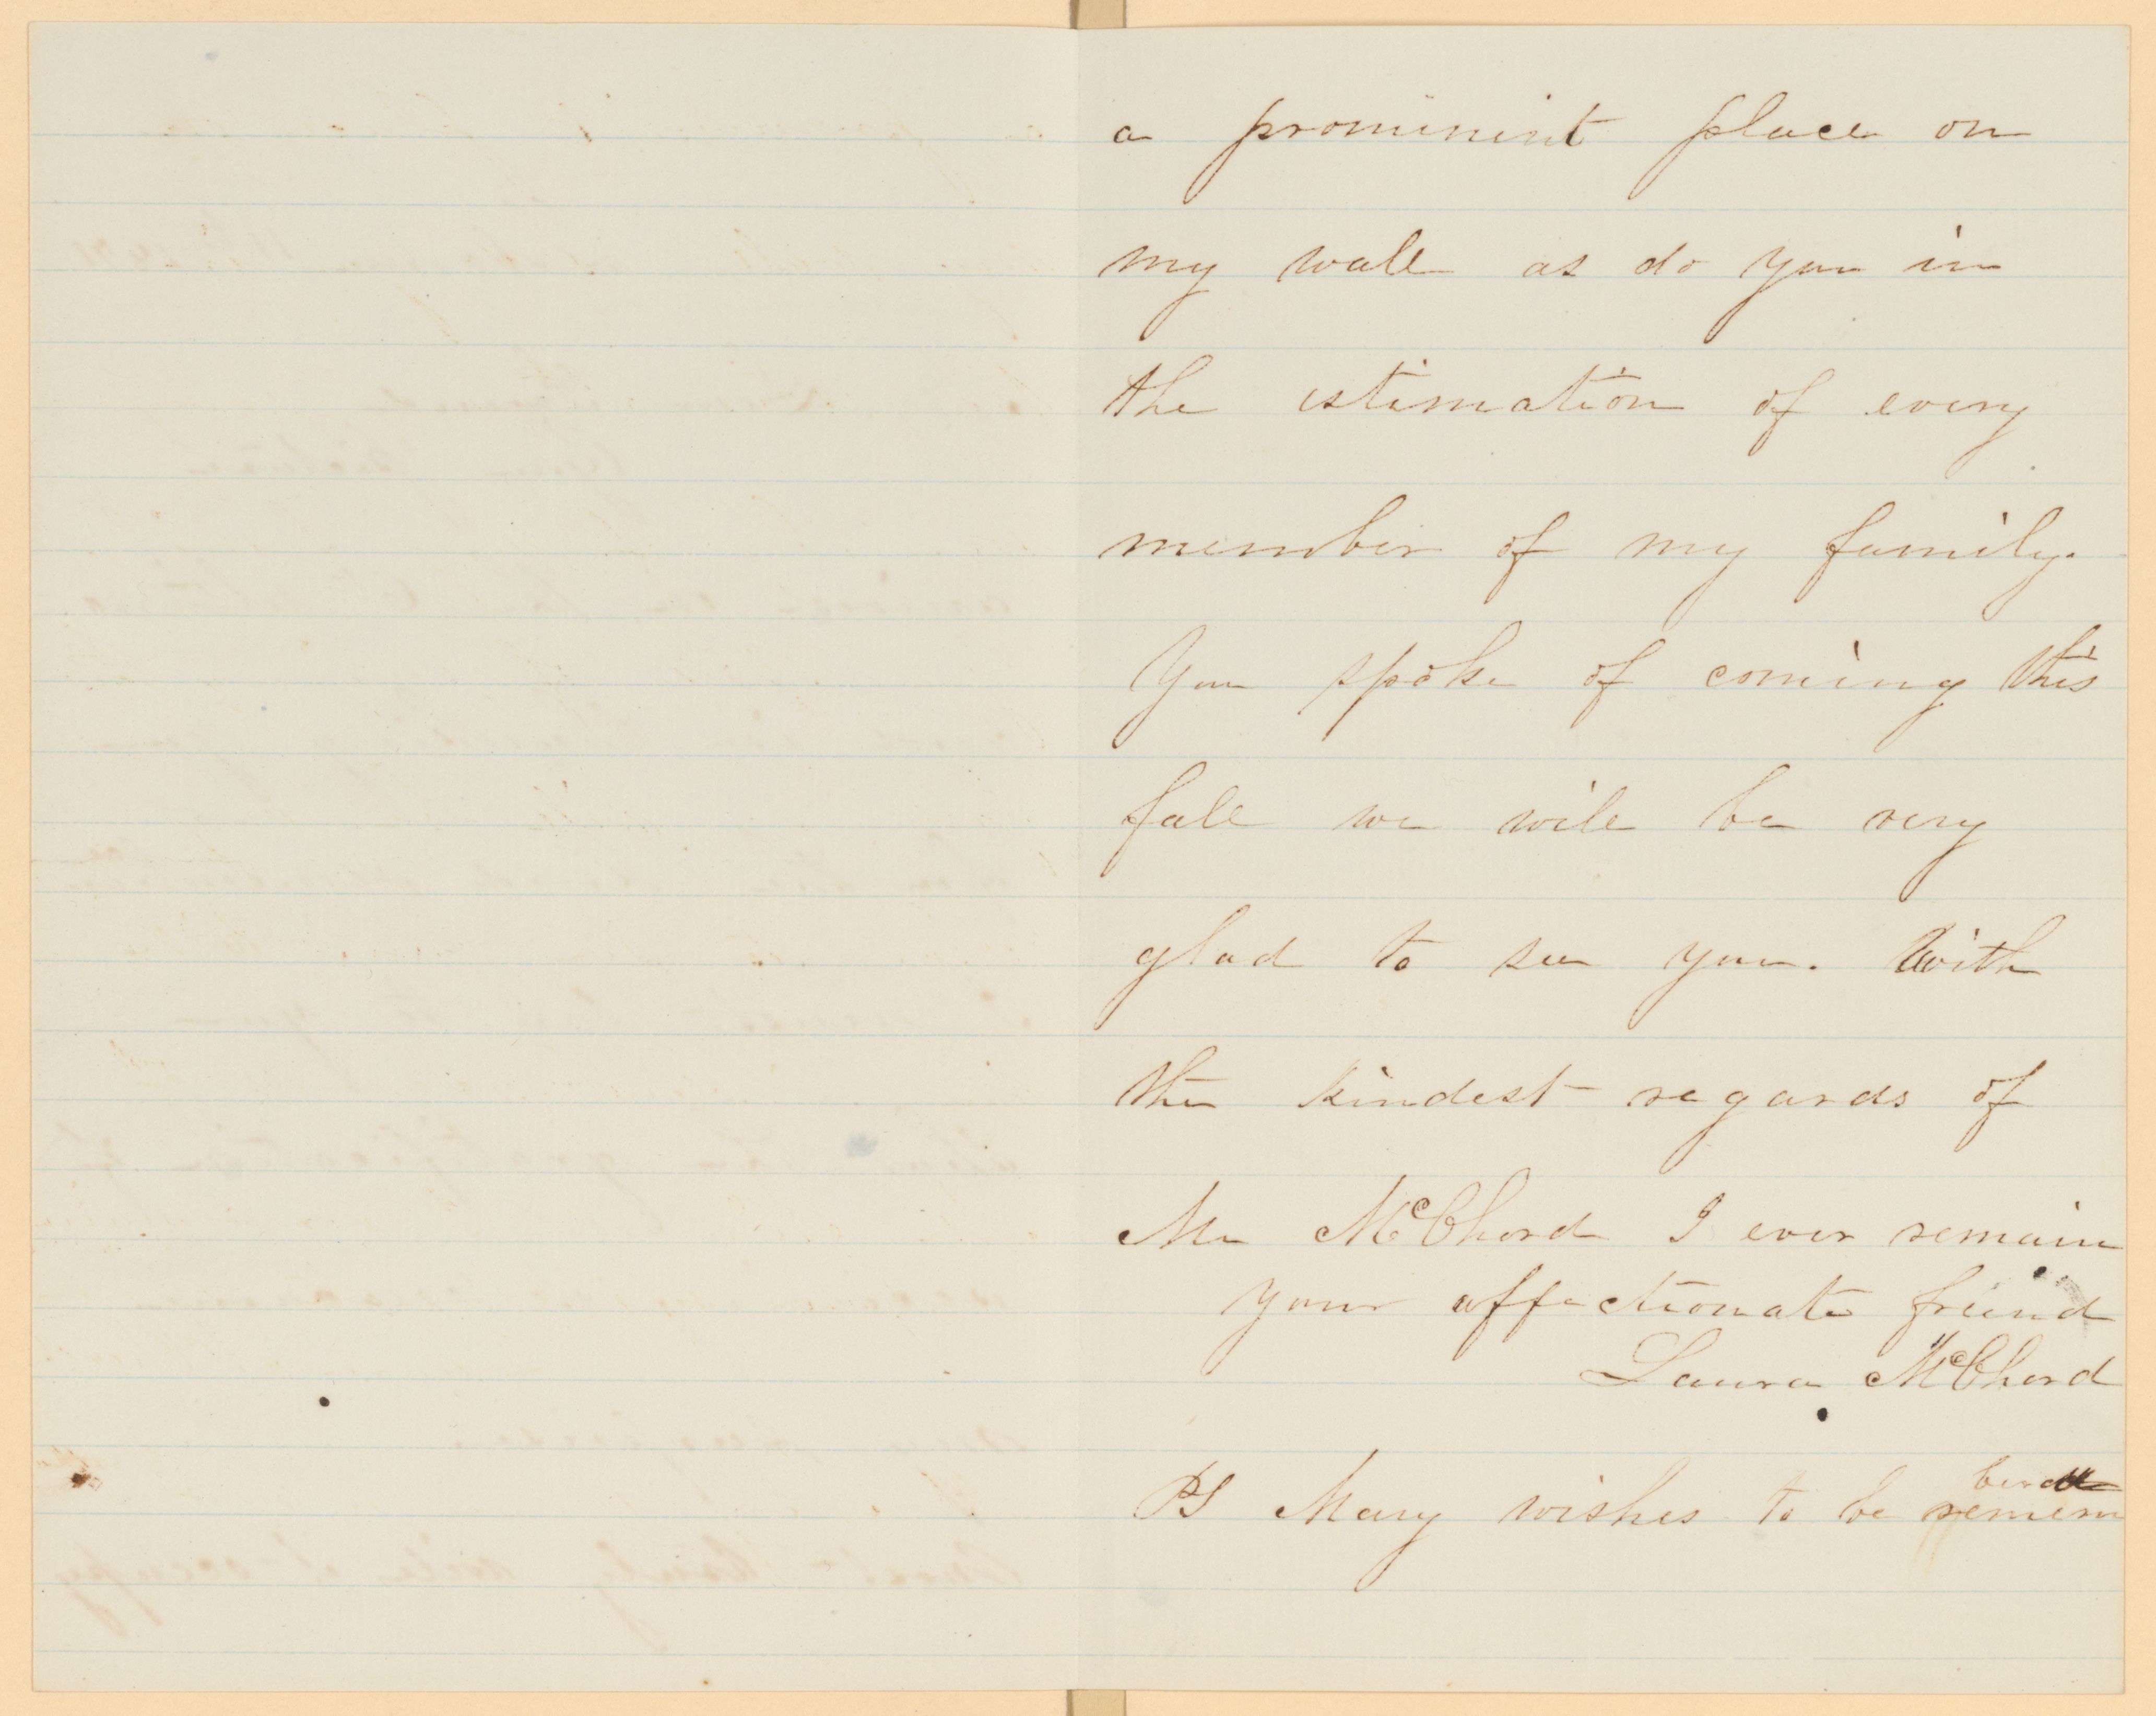 a prominent place on
my wall as do you in
the estimation of every
member of my family.
You spoke of coming this
fall we will be very
glad to see you. With
the kindest regards of
Mr McChord I ever remain
your affectionate friend
Laura McChord
PS Mary wishes to be remem
berd